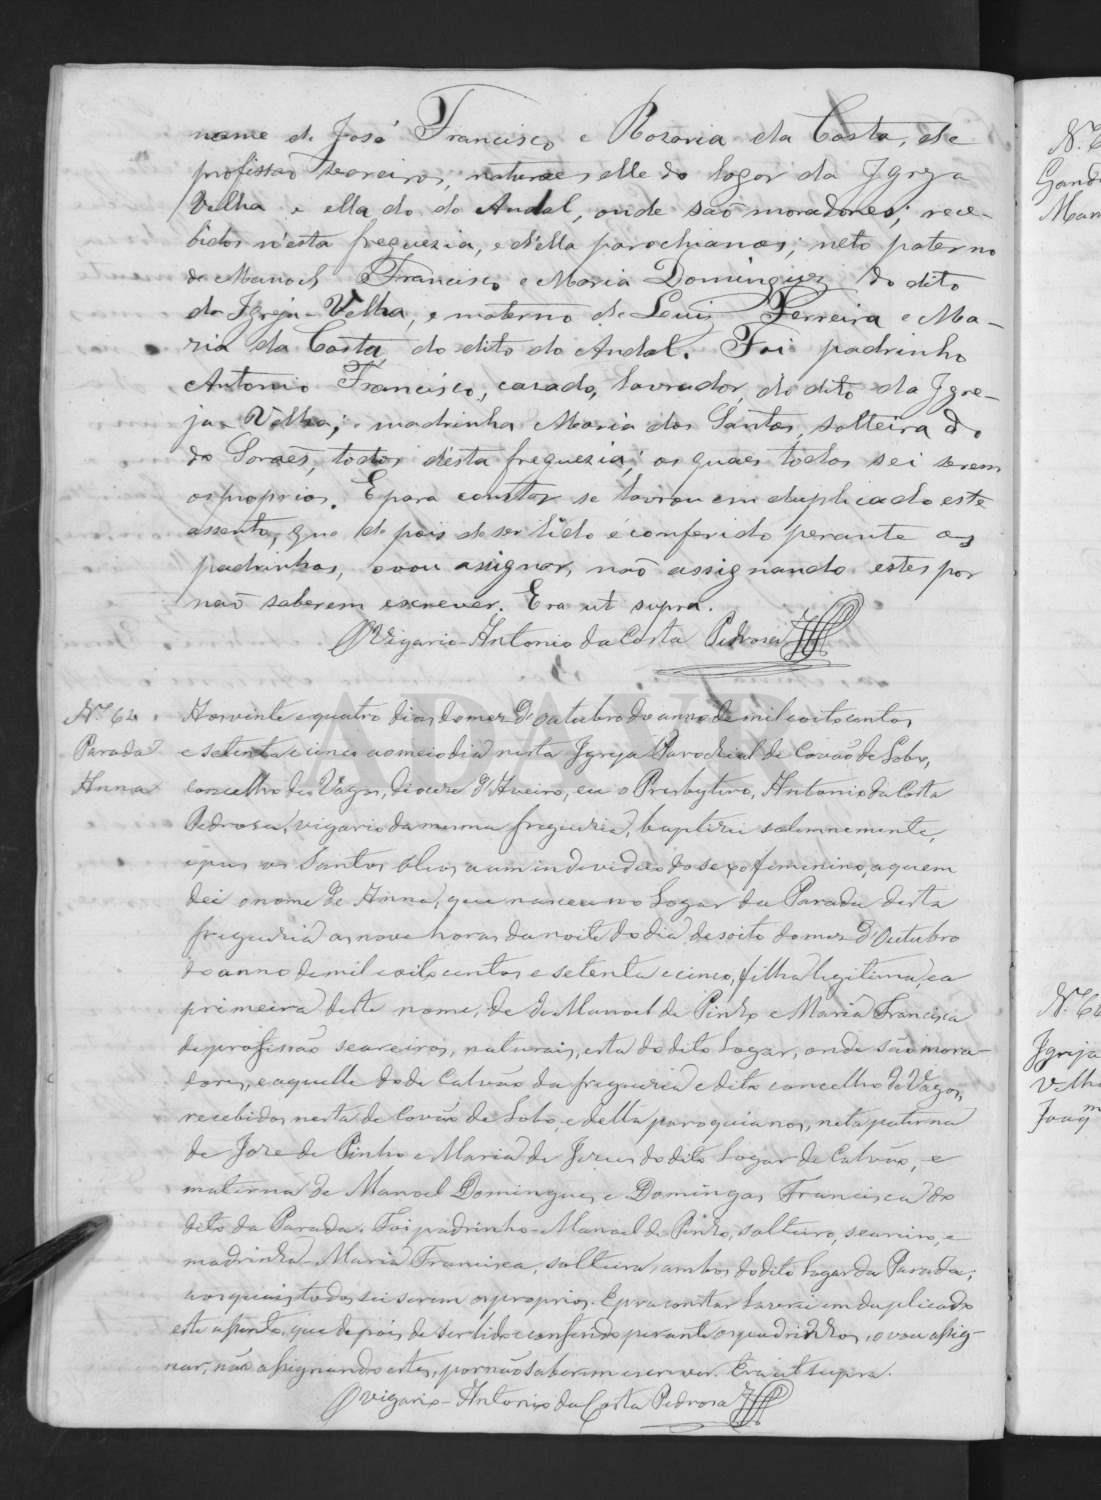 nome de José Francisco e Rosaria da Costa, de
profissão seareiros, naturaes elle do logar da Igreja
Velha e ella do do Andal, onde são moradores; rece-
bidos n'esta freguezia, e d'ella parochianos; neto paterno
de Manoel Francisco e Maria Domingues do dito
da Igreja-Velha, e materno de Luis Ferreira e Ma-
ria da Costa, do dito do Andal. Foi padrinho
Antonio Francisco, casado, lavrador, do dito da Igre-
ja-Velha; e madrinha Maria dos Santos, solteira do
do todos d'esta freguezia; os quaes todos sei serem
os proprios. E para constar se lavrou em duplicado este
assento, que depois de ser lido e conferido perante os
padrinhos, o vou asignar, não assignando estes por
não saberem escrever. Era ut supra.
O Vigario-Antonio da Costa Pedrosa
Nº 62
Parada
Anna
Aos vinte e quatro dias do mez d'outubro do anno de mil oito centos
e setenta e cinco ao meio dia nesta Igreja Parochial de Covão de Lobo,
concelho de Vagos, diocese d'Aveiro, eu o Presbytero, Antonio da Costa
Pedrosa, vigario da mesma freguezia, baptizei solemnemente,
e pus os Santos Oleos a um individuo do sexo femenino, a quem
dei o nome de Anna, que nasceu no Logar da Parada desta
freguezia as nove horas da noite do dia desoito do mez d'Outubro
do anno de mil oito centos e setenta e cinco, filha legitima, e a
primeira deste nome, de de Manoel de Pinho e Maria Francisca
de profissão seareiros, naturais, esta do dito Logar, onde são mora-
dores, e aquelle do de Calvão da freguezia e dito concelho de Vagos,
recebidos nesta de Covão de Lobo, e della paroquianos, neta paterna
de Jose de Pinho e Maria de Jesus do dito Logar de Calvão, e
materna de Manoel Domingues e Domingas Francisca do
dito da Parada. Foi padrinho-Manoel de Pinho, solteiro, seareiro, e
madrinha-Maria Francisca, solteira, ambos do dito Logar da Parada;
aos quais todos sei serem os proprios. E pra constar lavrei em duplicado
este assento, que depois de ser lido e conferido perante os padrinhos, o vou assig-
nar, não assignando estes, por não saberem escrever. Era ut supra.
O vigario-Antonio da Costa Pedrosa
ADAVR
Igreja
Velha